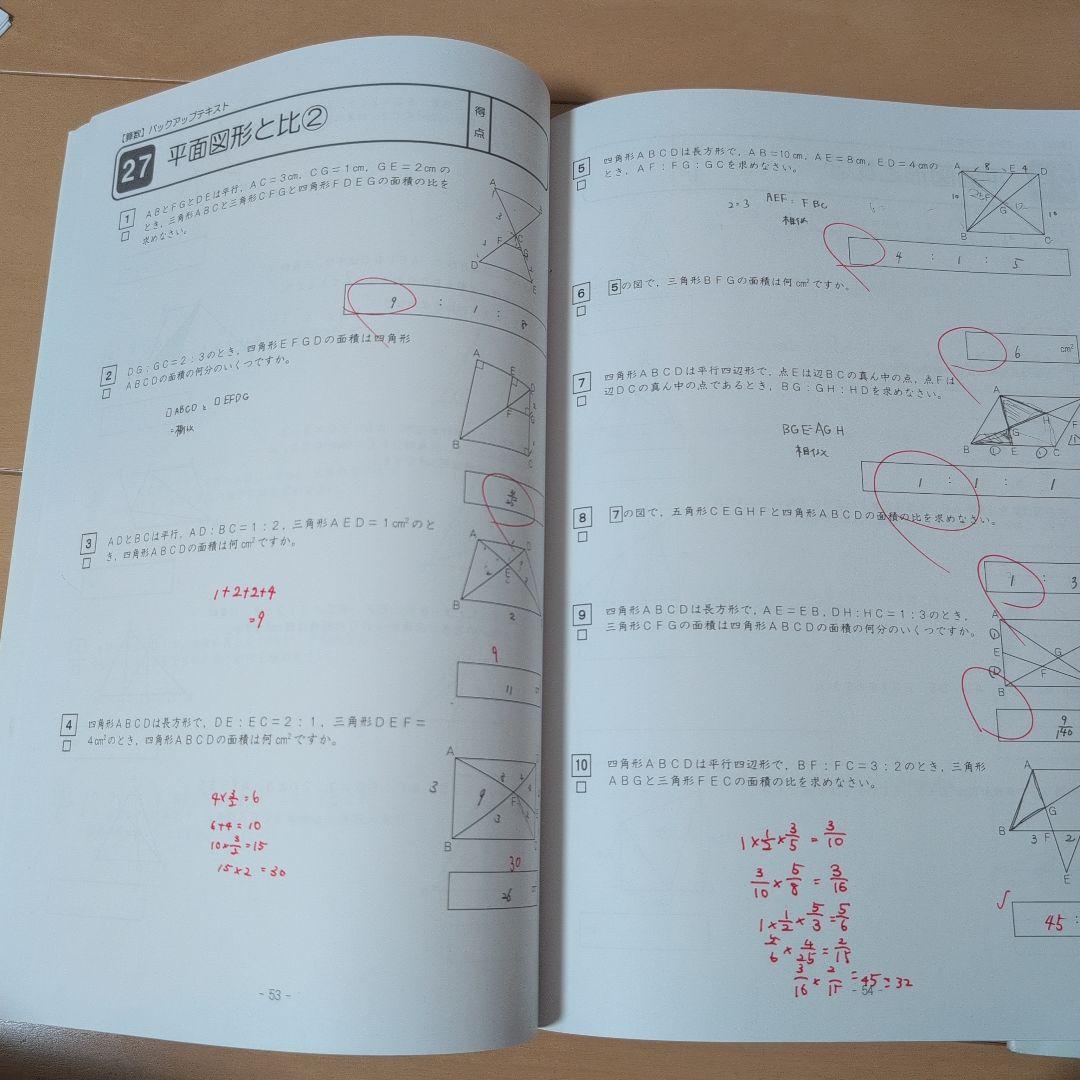 【算数】バックアップテキスト
27 平面図形と比②
得点
1
ABとFGとDEは平行，AC＝3cm，CG＝1cm，GE＝2cmの
とき，三角形ABCと三角形CFGと四角形FDEGの面積の比を
求めなさい。
9 : 1 : 8
2
DG：GC＝2：3のとき，四角形EFGDの面積は四角形
ABCDの面積の何分のいくつですか。
□ABCD と □EFDG
3
ADとBCは平行，AD：BC＝1：2，三角形AED＝1cm²のと
き，四角形ABCDの面積は何cm²ですか。
1+2+2+4
=9
9
11
4
四角形ABCDは長方形で，DE：EC＝2：1，三角形DEF＝
4cm²のとき，四角形ABCDの面積は何cm²ですか。
4×3/2=6
6+4=10
10×3/2=15
15×2=30
30
26
- 53 -
5
四角形ABCDは長方形で，AB＝10cm，AE＝8cm，ED＝4cmの
とき，AF：FG：GCを求めなさい。
2:3 AEF:FBC
相似
4 : 1 : 5
6
5の図で，三角形BFGの面積は何cm²ですか。
6 cm²
7
四角形ABCDは平行四辺形で，点Eは辺BCの真ん中の点，点Fは
辺DCの真ん中の点であるとき，BG：GH：HDを求めなさい。
BGE AGH
相似
1 : 1 : 1
8
7の図で，五角形CEGHFと四角形ABCDの面積の比を求めなさい。
1 : 3
9
四角形ABCDは長方形で，AE＝EB，DH：HC＝1：3のとき，
三角形CFGの面積は四角形ABCDの面積の何分のいくつですか。
9/140
10
四角形ABCDは平行四辺形で，BF：FC＝3：2のとき，三角形
ABGと三角形FECの面積の比を求めなさい。
1×1/2×3/5=3/10
3/10×5/8=3/16
1×1/2×5/3=5/6
5/6×4/25=2/15
3/16×2/15=45=32
45 :
- 54 -